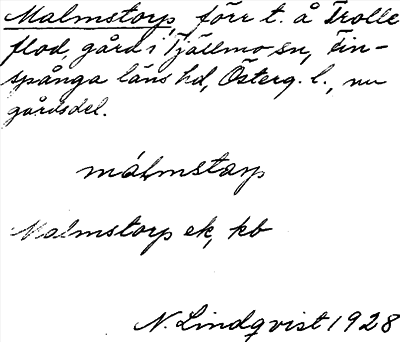 Malmstorp, förr t. å Trolle
flod, gård i Tjällmo sn, Fin-
spånga läns hd, Österg. l., nu
gårdsdel.
málmstarp
Malmstorp ek, kb
N. Lindqvist 1928